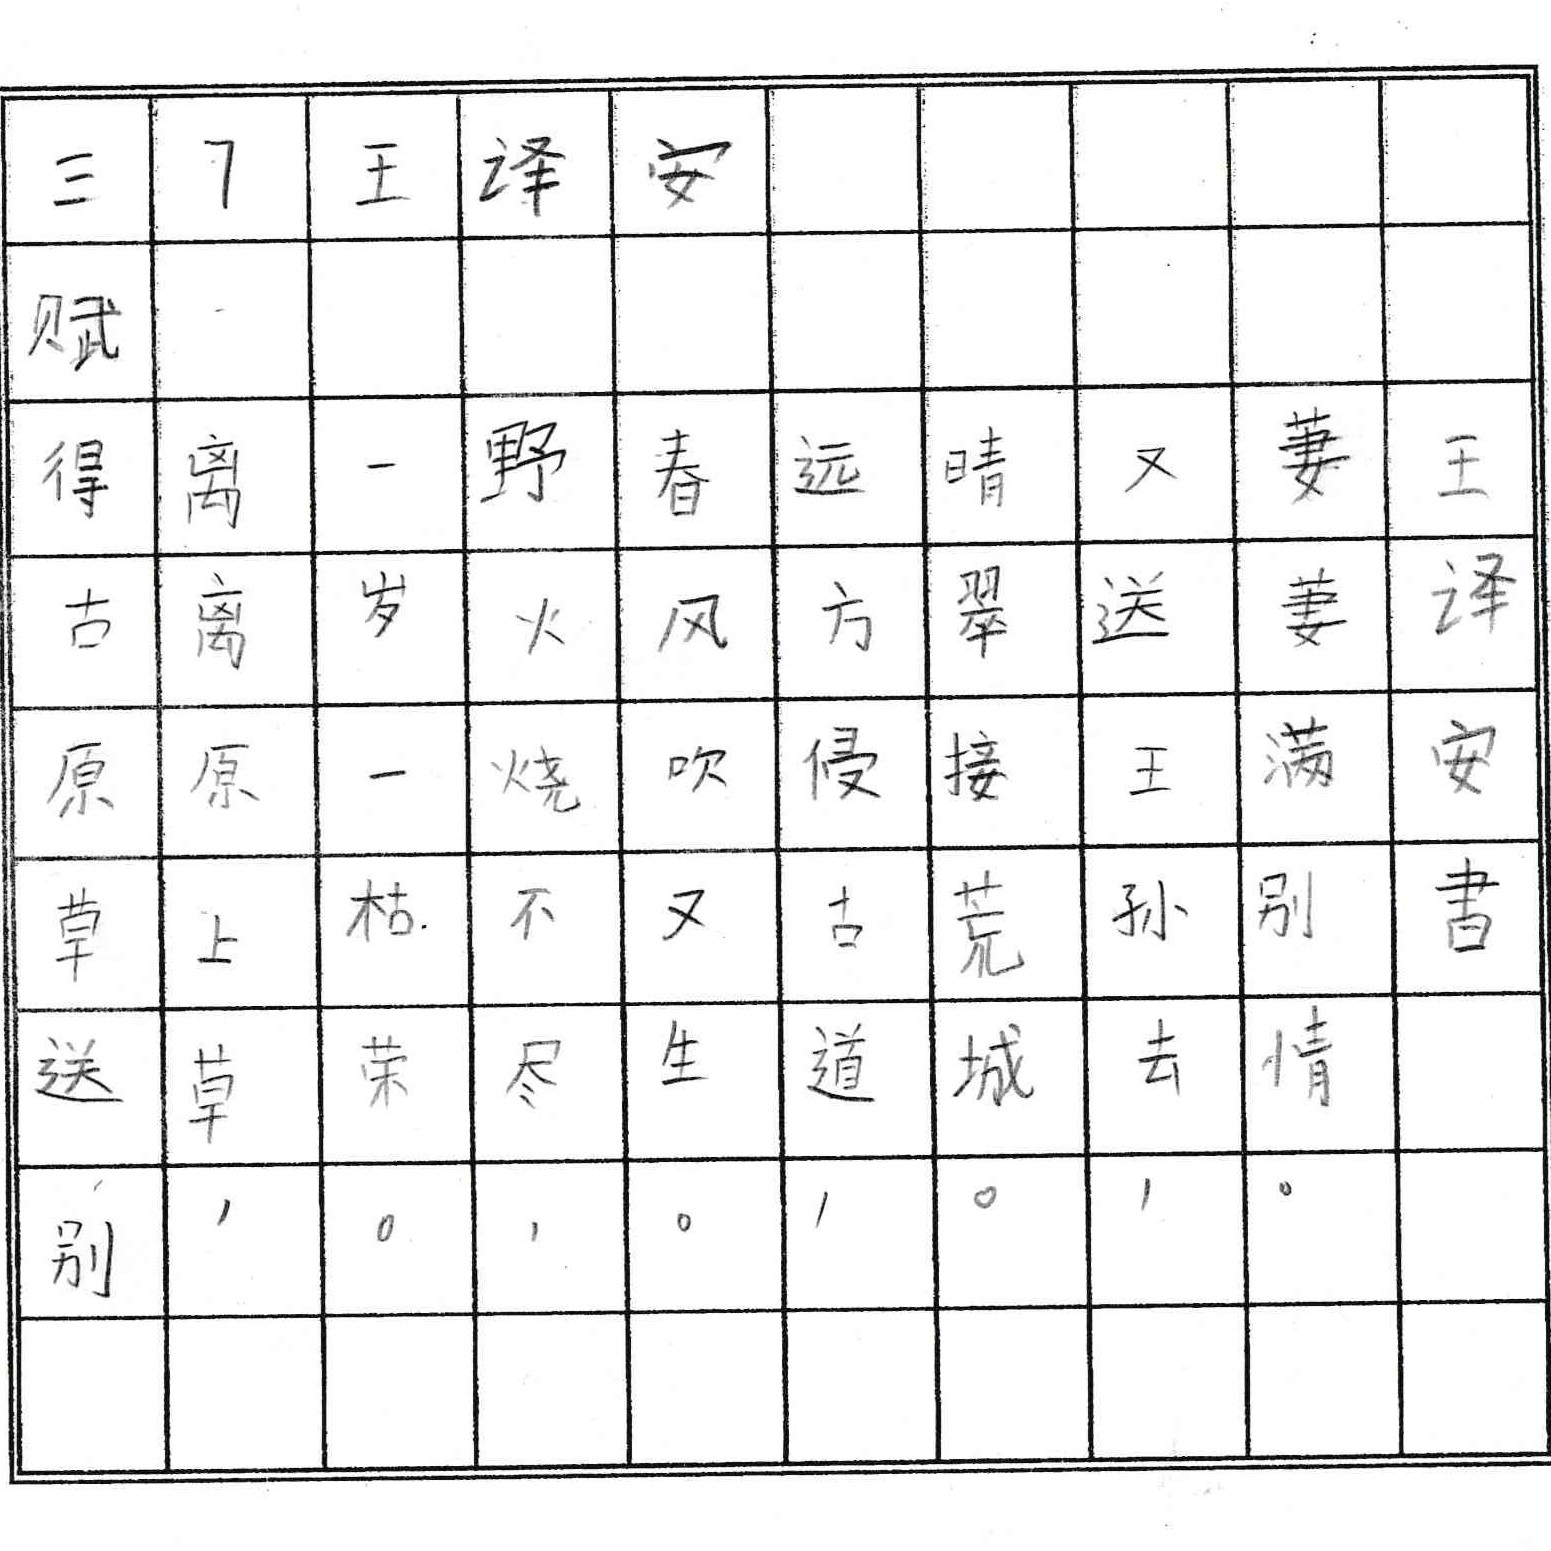 三7王译安
赋得古原草送别
离离原上草，
一岁一枯荣。
野火烧不尽，
春风吹又生。
远方侵古道，
晴翠接荒城。
又送王孙去，
萋萋满别情。
王译安書